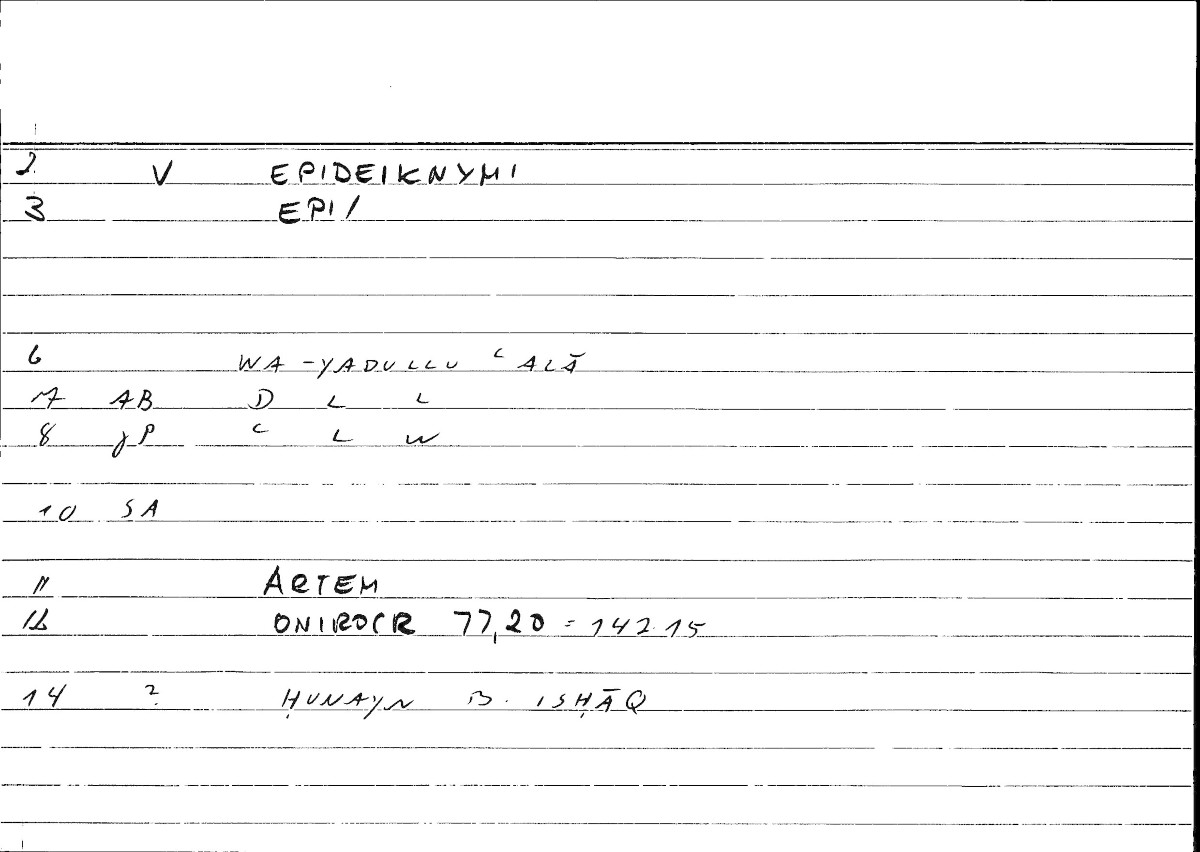 2 V EPIDEIKNYMI
3 EPI/
6 WA-YADULLU ʿALĀ
7 AB D L L
8 JP ʿ L W
10 SA
11 ARTEM
12 ONIROCR 77,20 = 142.15
14 ? ḤUNAYN B. ISḤĀQ